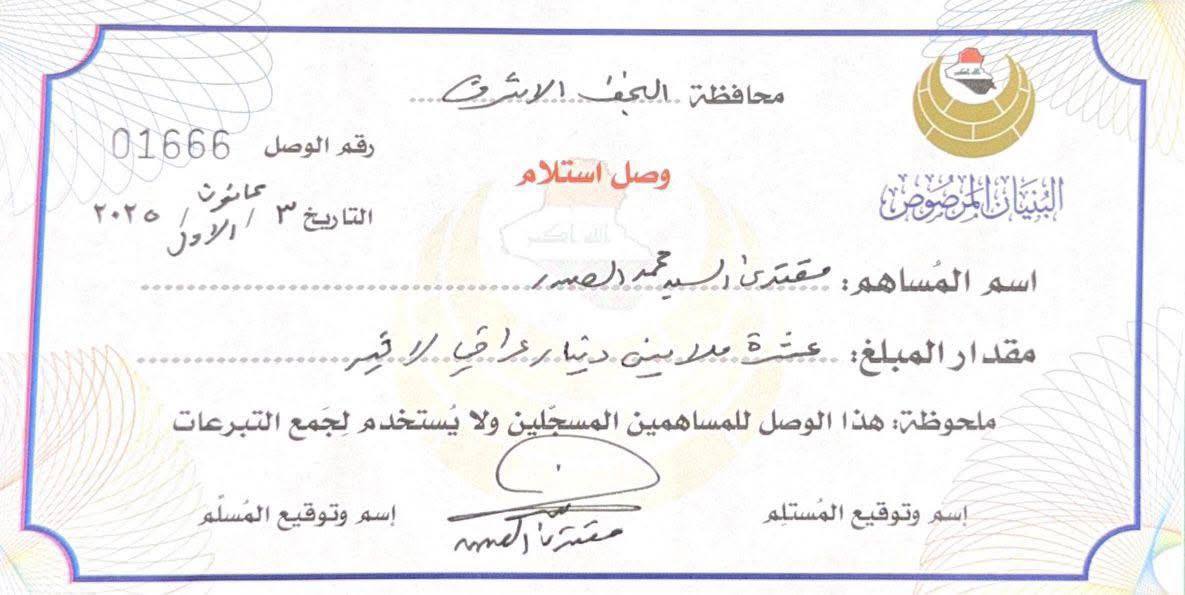 محافظة النجف الاشرف
رقم الوصل 01666
وصل استلام
البُنيَان المَرصُوص
التاريخ ٣ / كانون الاول / ٢٠٢٥
الله اكبر
اسم المُساهم: مقتدى السيد محمد الصدر
مقدار المبلغ: عشرة ملايين دينار عراقي لا غير
ملحوظة: هذا الوصل للمساهمين المسجّلين ولا يُستخدم لِجَمع التبرعات
إسم وتوقيع المُستلِم
إسم وتوقيع المُسلّم
مقتدى الصدر